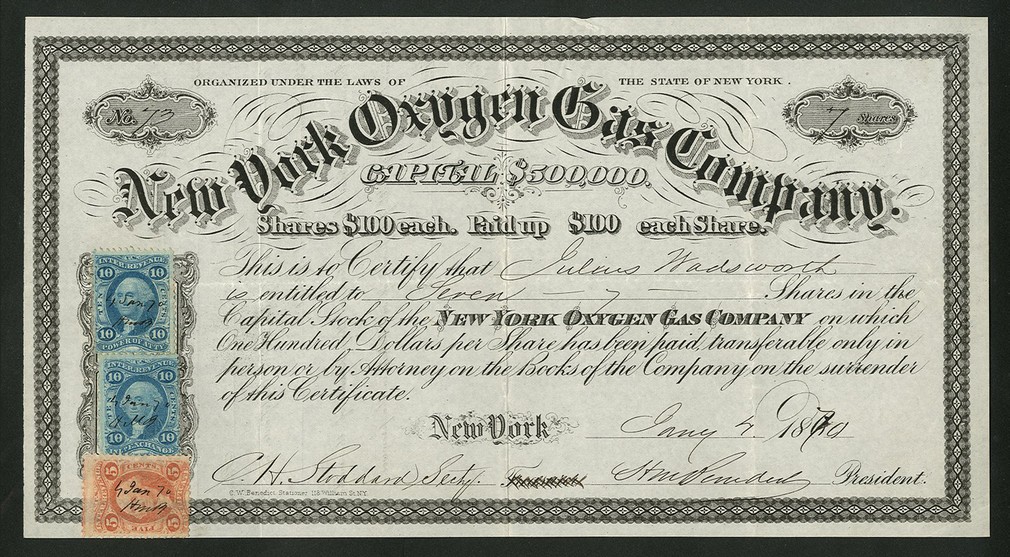 ORGANIZED UNDER THE LAWS OF THE STATE OF NEW YORK.
No. 73
7 Shares
New York Oxygen Gas Company.
CAPITAL $500,000.
Shares $100 each. Paid up $100 each Share.
This is to Certify that Julius Wadsworth
is entitled to Seven — 7 — Shares in the
Capital Stock of the NEW YORK OXYGEN GAS COMPANY on which
One Hundred Dollars per Share has been paid, transferable only in
person or by Attorney on the Books of the Company on the surrender
of this Certificate.
New York Jany 4 1870
C. H. Stoddard Secty. President.
C. W. Benedict, Stationer, 118 William St. N.Y.
INTER. REVENUE
10 10
TEN CENTS
4 Jan 70
10 10
POWER OF ATTY
INTER. REVENUE
10 10
CENTS
4 Jan 70
10 10
EXCHANGE
5 CENTS 5
4 Jan 70
5 5